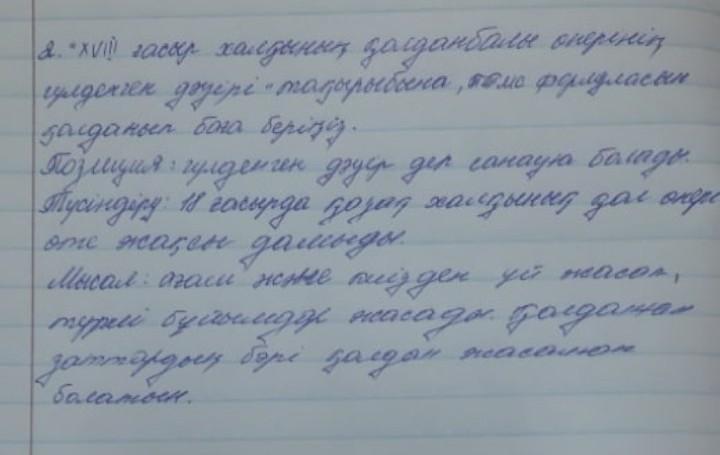 2. "XVIII ғасыр халқының қолданбалы өнерінің
гүлденген дәуірі" тақырыбына, ПОМС формуласын
қолданып баға беріңіз.
Позиция: гүлденген дәуір деп санауға болады.
Түсіндіру: 18 ғасырда қазақ халқының қол өнері
өте жақсы дамыды.
Мысал: ағаш және киізден үй жасап,
түрлі бұйымдар жасады. Қолданған
заттардың бәрі қолдан жасалған
болатын.